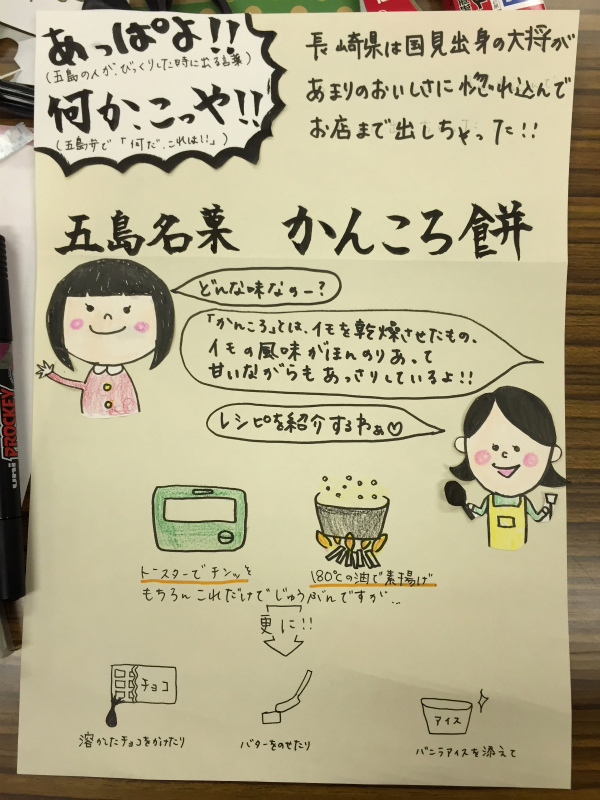 あっぱよ!!
(五島の人が、びっくりした時に出る言葉)
何か、こっや!!
(五島弁で「何だ、これは!!」)
長崎県は国見出身の大将が
あまりのおいしさに惚れ込んで
お店まで出しちゃった!!
五島名菓 かんころ餅
どんな味なのー?
「かんころ」とは、イモを乾燥させたもの、
イモの風味がほんのりあって
甘いながらもあっさりしているよ!!
レシピを紹介するわぁ♡
トースターでチンッと
180℃の油で素揚げ
もちろんこれだけでじゅうぶんですが...
更に!!
チョコ
溶かしたチョコをかけたり
バターをのせたり
アイス
バニラアイスを添えて
uni PROCKEY